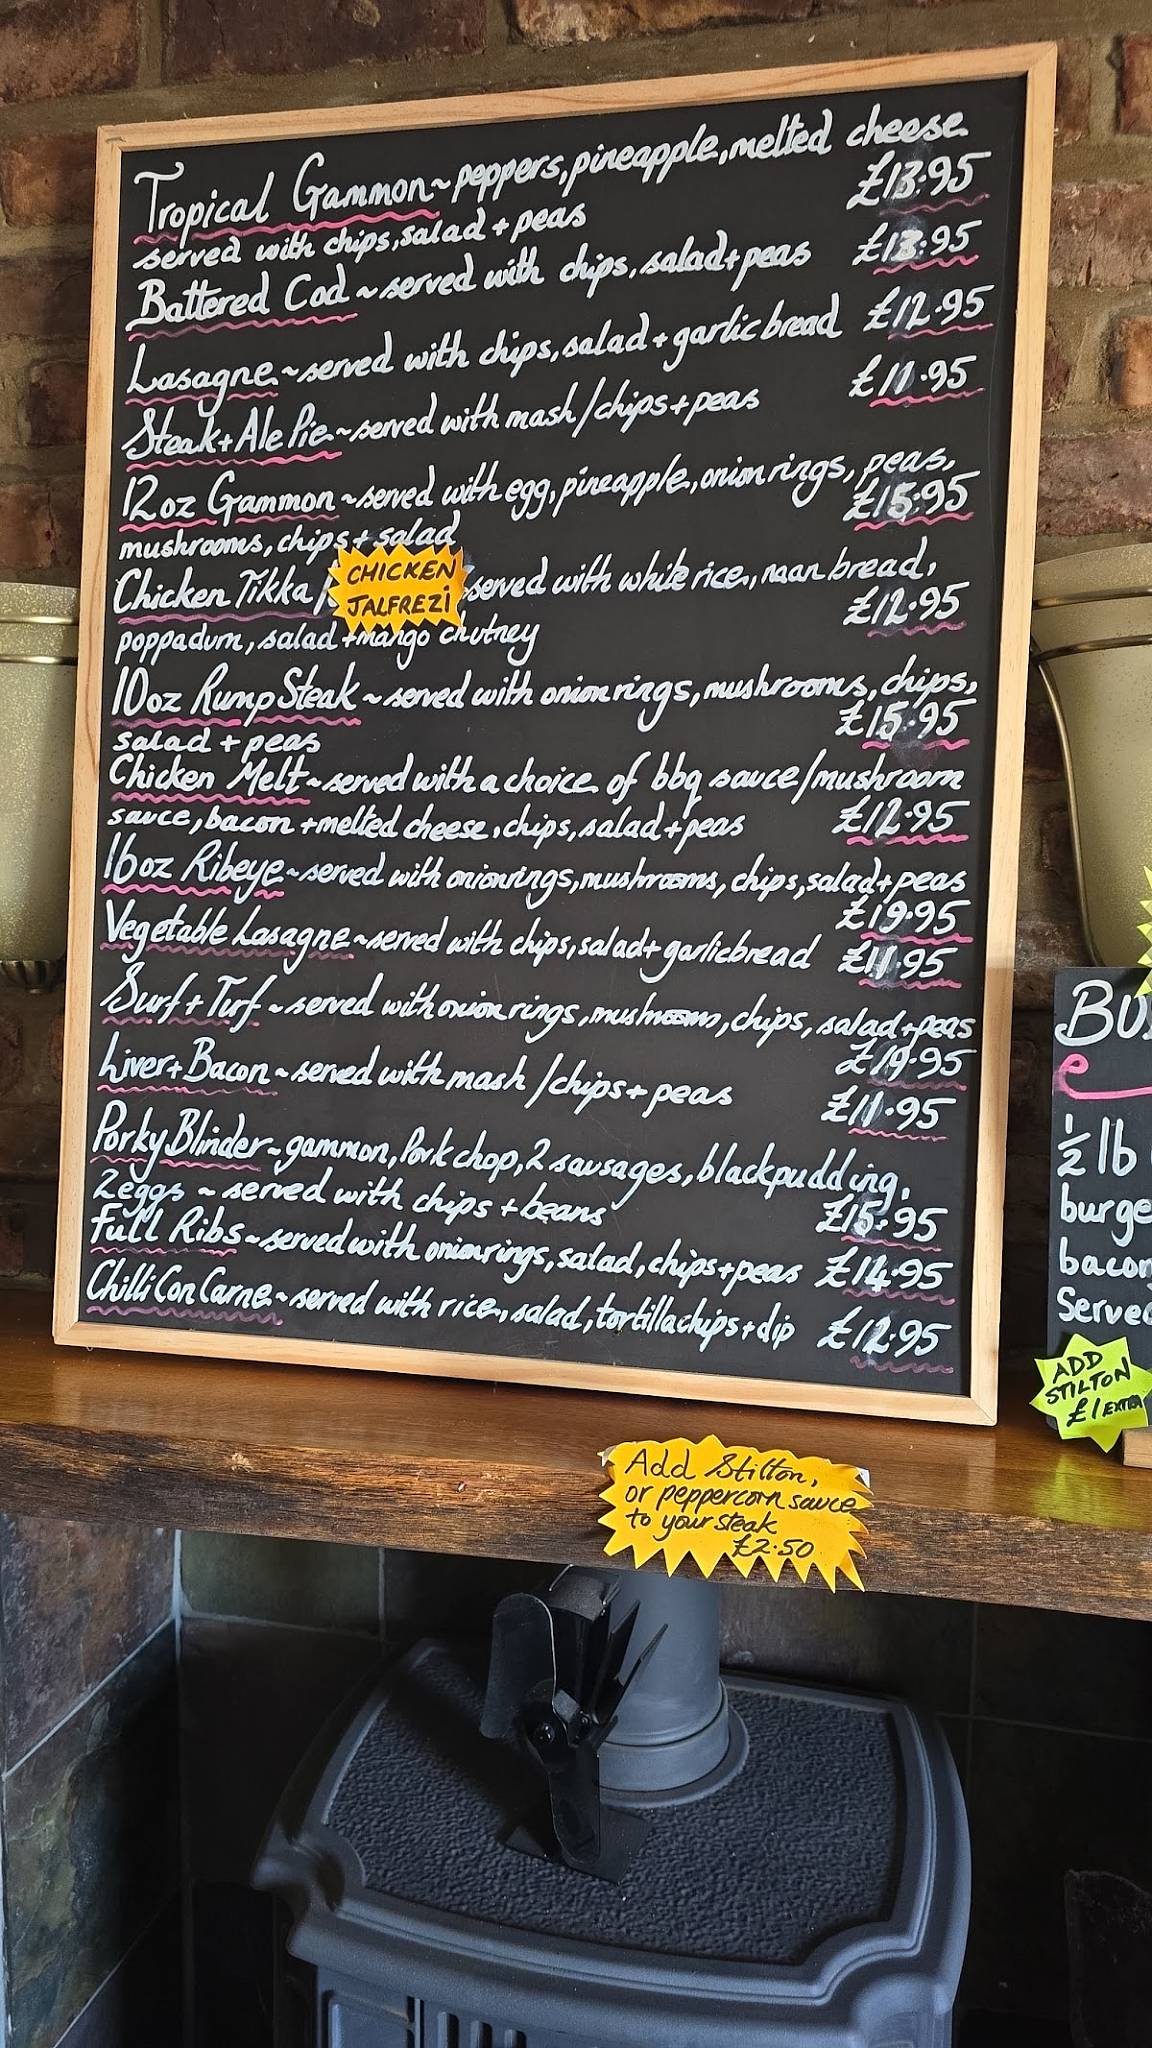 Tropical Gammon~peppers, pineapple, melted cheese
£13.95
served with chips, salad + peas
Battered Cod ~ served with chips, salad + peas £13.95
Lasagne ~ served with chips, salad + garlic bread £12.95
Steak + Ale Pie ~ served with mash/chips + peas £11.95
12oz Gammon ~ served with egg, pineapple, onion rings, peas,
£15.95
mushrooms, chips + salad
Chicken Tikka served with white rice, naan bread,
CHICKEN
JALFREZI
£12.95
poppadum, salad + mango chutney
10oz Rump Steak ~ served with onion rings, mushrooms, chips,
£15.95
salad + peas
Chicken Melt ~ served with a choice of bbq sauce/mushroom
sauce, bacon + melted cheese, chips, salad + peas £12.95
16oz Ribeye ~ served with onion rings, mushrooms, chips, salad + peas
£19.95
Vegetable Lasagne ~ served with chips, salad + garlic bread £11.95
Surf + Turf ~ served with onion rings, mushrooms, chips, salad + peas
£19.95
Liver + Bacon ~ served with mash/chips + peas £11.95
Porky Blinder ~ gammon, Pork chop, 2 sausages, black pudding,
2 eggs ~ served with chips + beans £15.95
Full Ribs ~ served with onion rings, salad, chips + peas £14.95
Chilli Con Carne ~ served with rice, salad, tortilla chips + dip £12.95
½ lb
burge
bacon
Served
ADD
STILTON
£1 EXTRA
Add Stilton,
or peppercorn sauce
to your steak
£2.50